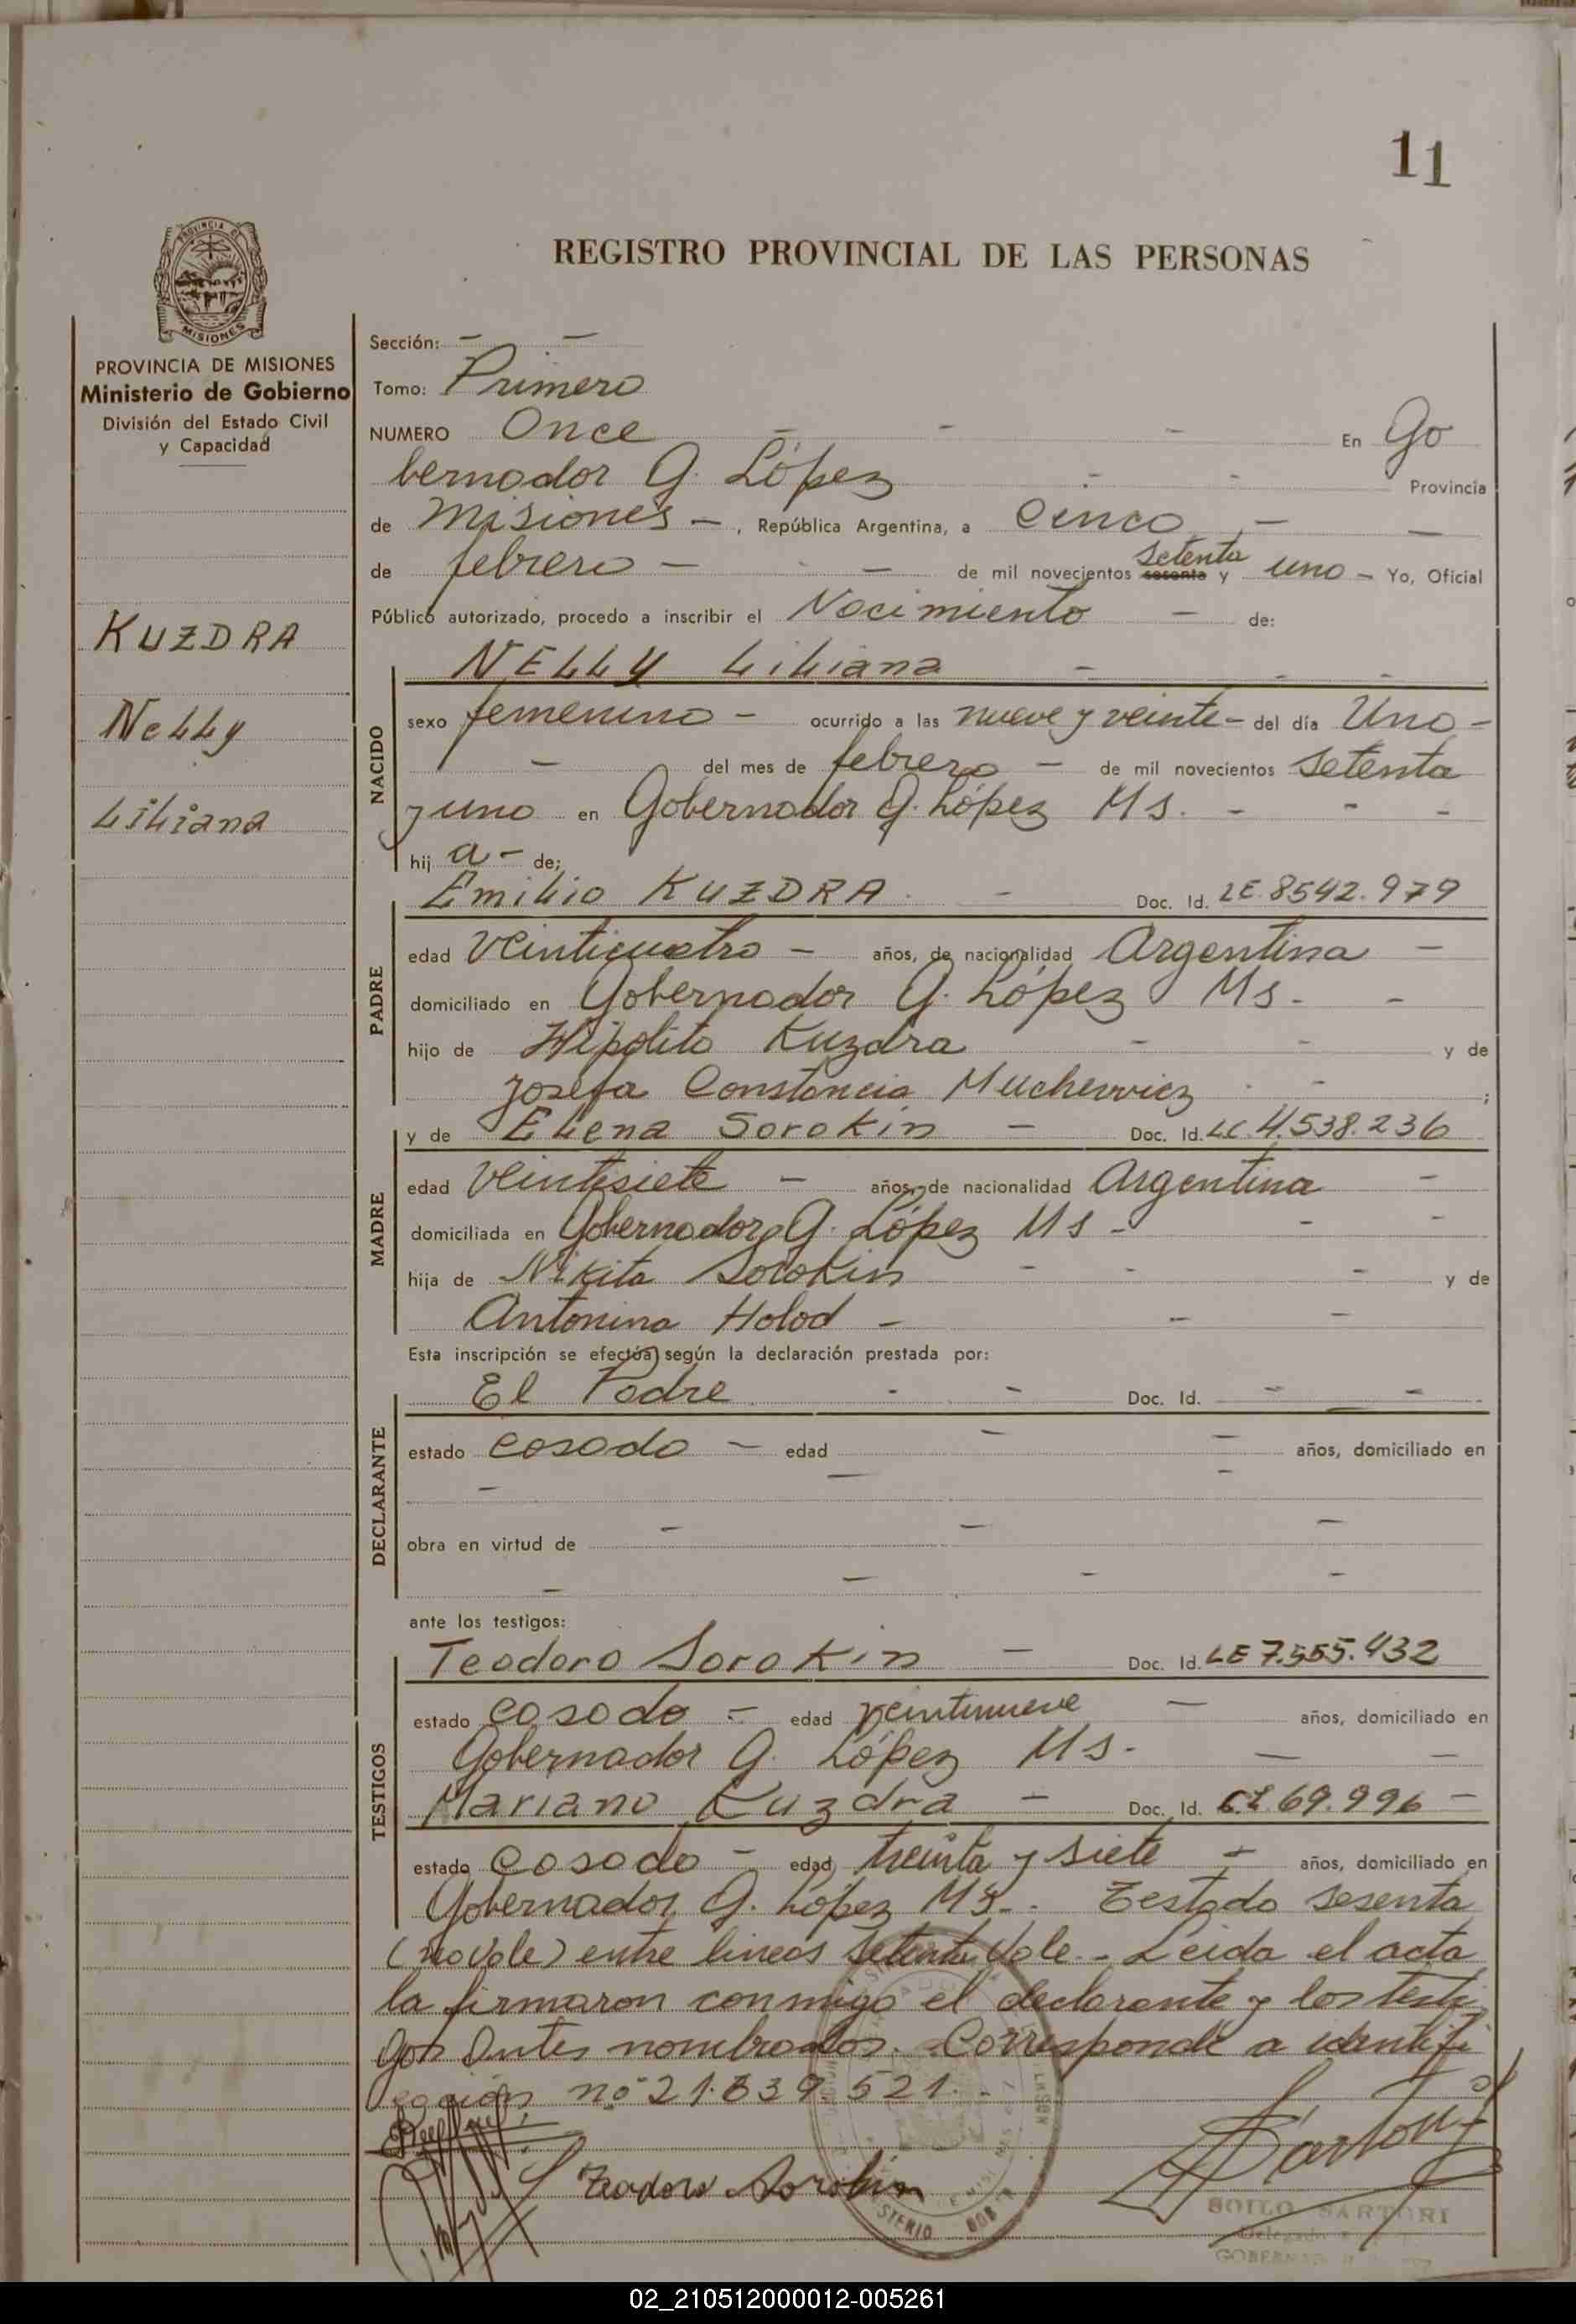 11
REGISTRO PROVINCIAL DE LAS PERSONAS
PROVINCIA DE MISIONES
Ministerio de Gobierno
División del Estado Civil
y Capacidad
KUZDRA
Nelly
Liliana
Sección: - -
Tomo: Primero
NUMERO Once - - - En Go
bernador G. López - - Provincia
de Misiones -, República Argentina, a Cinco - -
de febrero - - de mil novecientos sesenta setenta y uno - Yo, Oficial
Público autorizado, procedo a inscribir el Nacimiento - de:
NELLY Liliana - - -
NACIDO
sexo femenino - ocurrido a las nueve y veinte - del día Uno -
- del mes de febrero - de mil novecientos setenta
y uno en Gobernador G. López Ms. - - -
hij a - de;
Emilio KUZDRA - Doc. Id. LE. 8542.979
PADRE
edad veinticuatro - años, de nacionalidad Argentina -
domiciliado en Gobernador G. López Ms - -
hijo de Hipólito Kuzdra - - y de
Josefa Constancia Muchewicz - - ;
y de Elena Sorokin - Doc. Id. LC. 4.538.236
MADRE
edad veintisiete - años, de nacionalidad Argentina -
domiciliada en Gobernador G. López Ms - - -
hija de Nikita Sorokin - - - y de
Antonina Holod - - -
Esta inscripción se efectúa según la declaración prestada por:
El Padre - - Doc. Id. - -
DECLARANTE
estado casado - edad - - años, domiciliado en
- - -
obra en virtud de - - -
- - - -
ante los testigos:
Teodoro Sorokin - Doc. Id. LE 7.555.432
TESTIGOS
estado casado - edad veintinueve - años, domiciliado en
Gobernador G. López Ms - - -
Mariano Kuzdra - Doc. Id. 69.996 -
estado casado - edad treinta y siete - años, domiciliado en
Gobernador G. López Ms. - Testado sesenta
(no vale) entre lineas setenta vale. - Leida el acta
la firmaron conmigo el declarante y los testi
gos antes nombrados. Corresponde a identifi
cación nº 21.839.521. -
Teodoro Sorokin
Sartori
BOILO SARTORI
Delegado
02_210512000012-005261